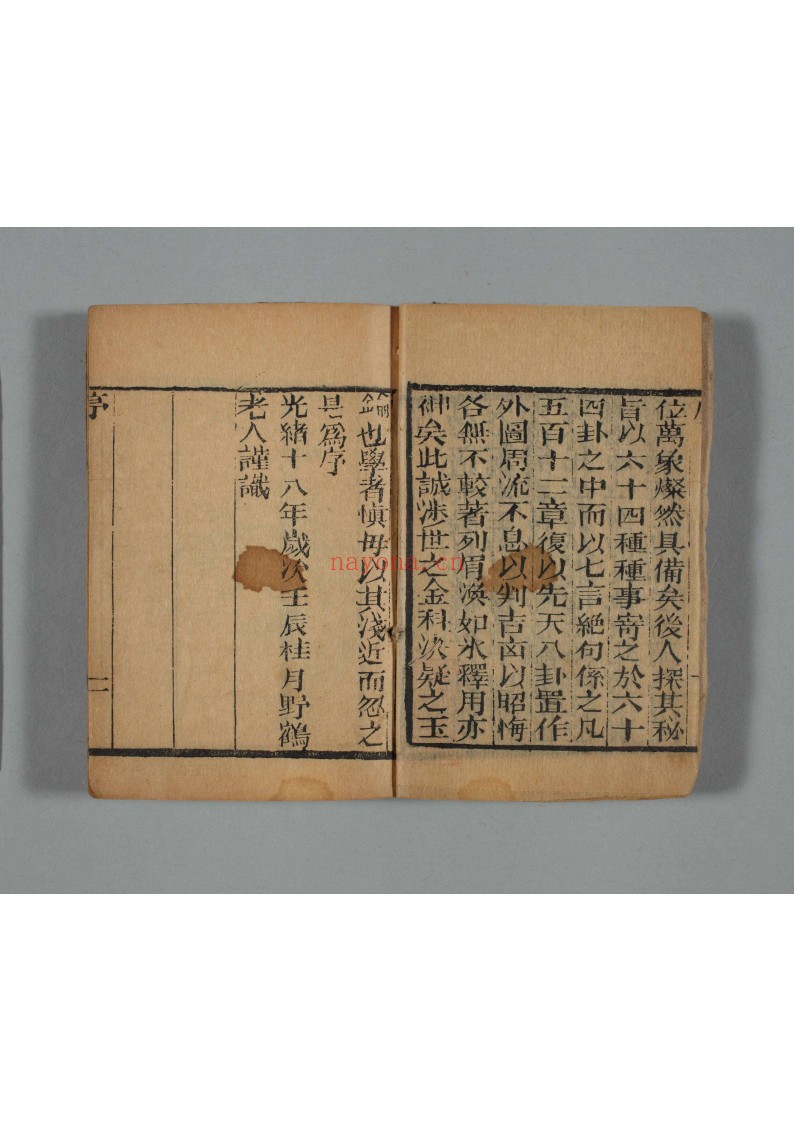 位萬象燦然具備矣後人探其秘
旨以六十四種種事寄之於六十
四卦之中而以七言絕句係之凡
五百十二章復以先天八卦置作
外圖周流不息以判吉凶以昭悔
各無不較著列眉渙如氷釋用亦
神矣此誠涉世之金科決疑之玉
鑰也學者慎毋以其淺近而忽之
是為序
光緒十八年歲次壬辰桂月野鶴
老人謹識
序
二
nayona.cn